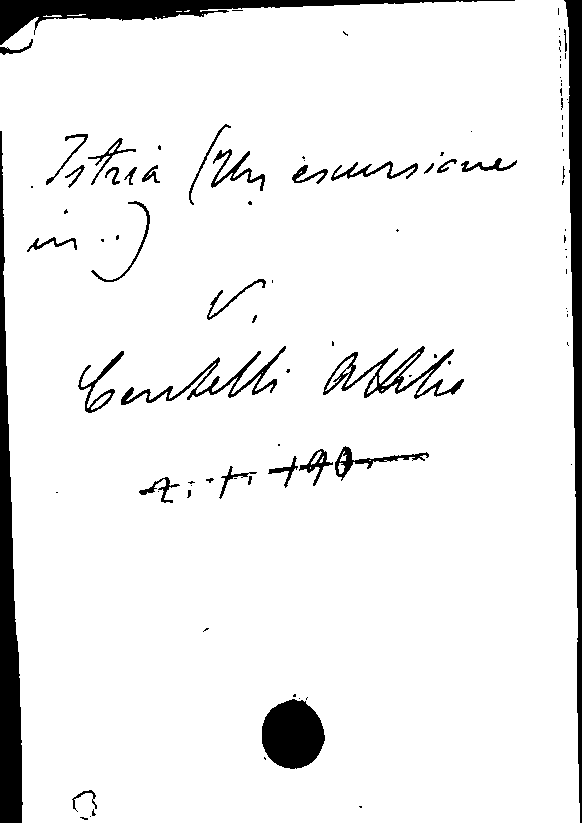 Istria (Un escursione
in ..)
V.
Centelli Attilio